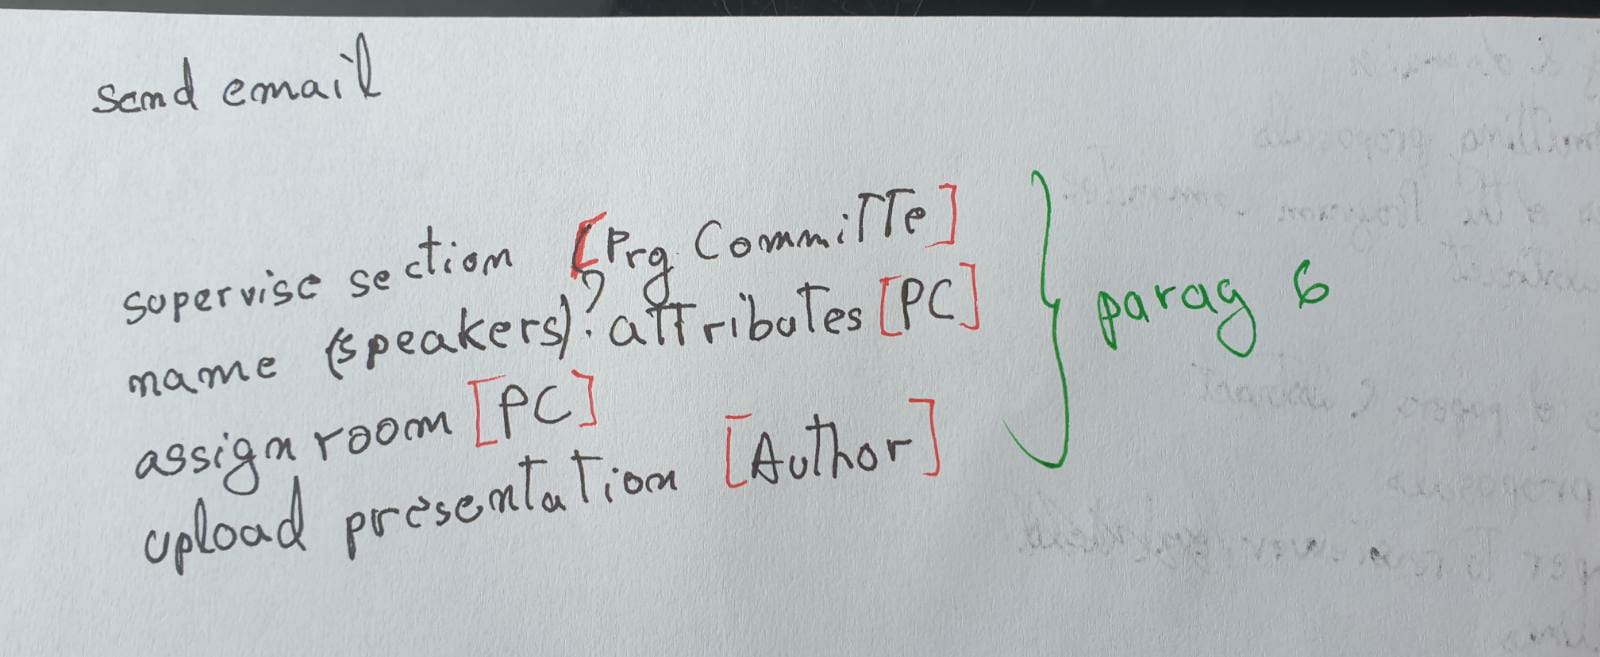 send email
supervise section [Prg Committe]
name (speakers)? attributes [PC]
assign room [PC]
upload presentation [Author]
parag 6